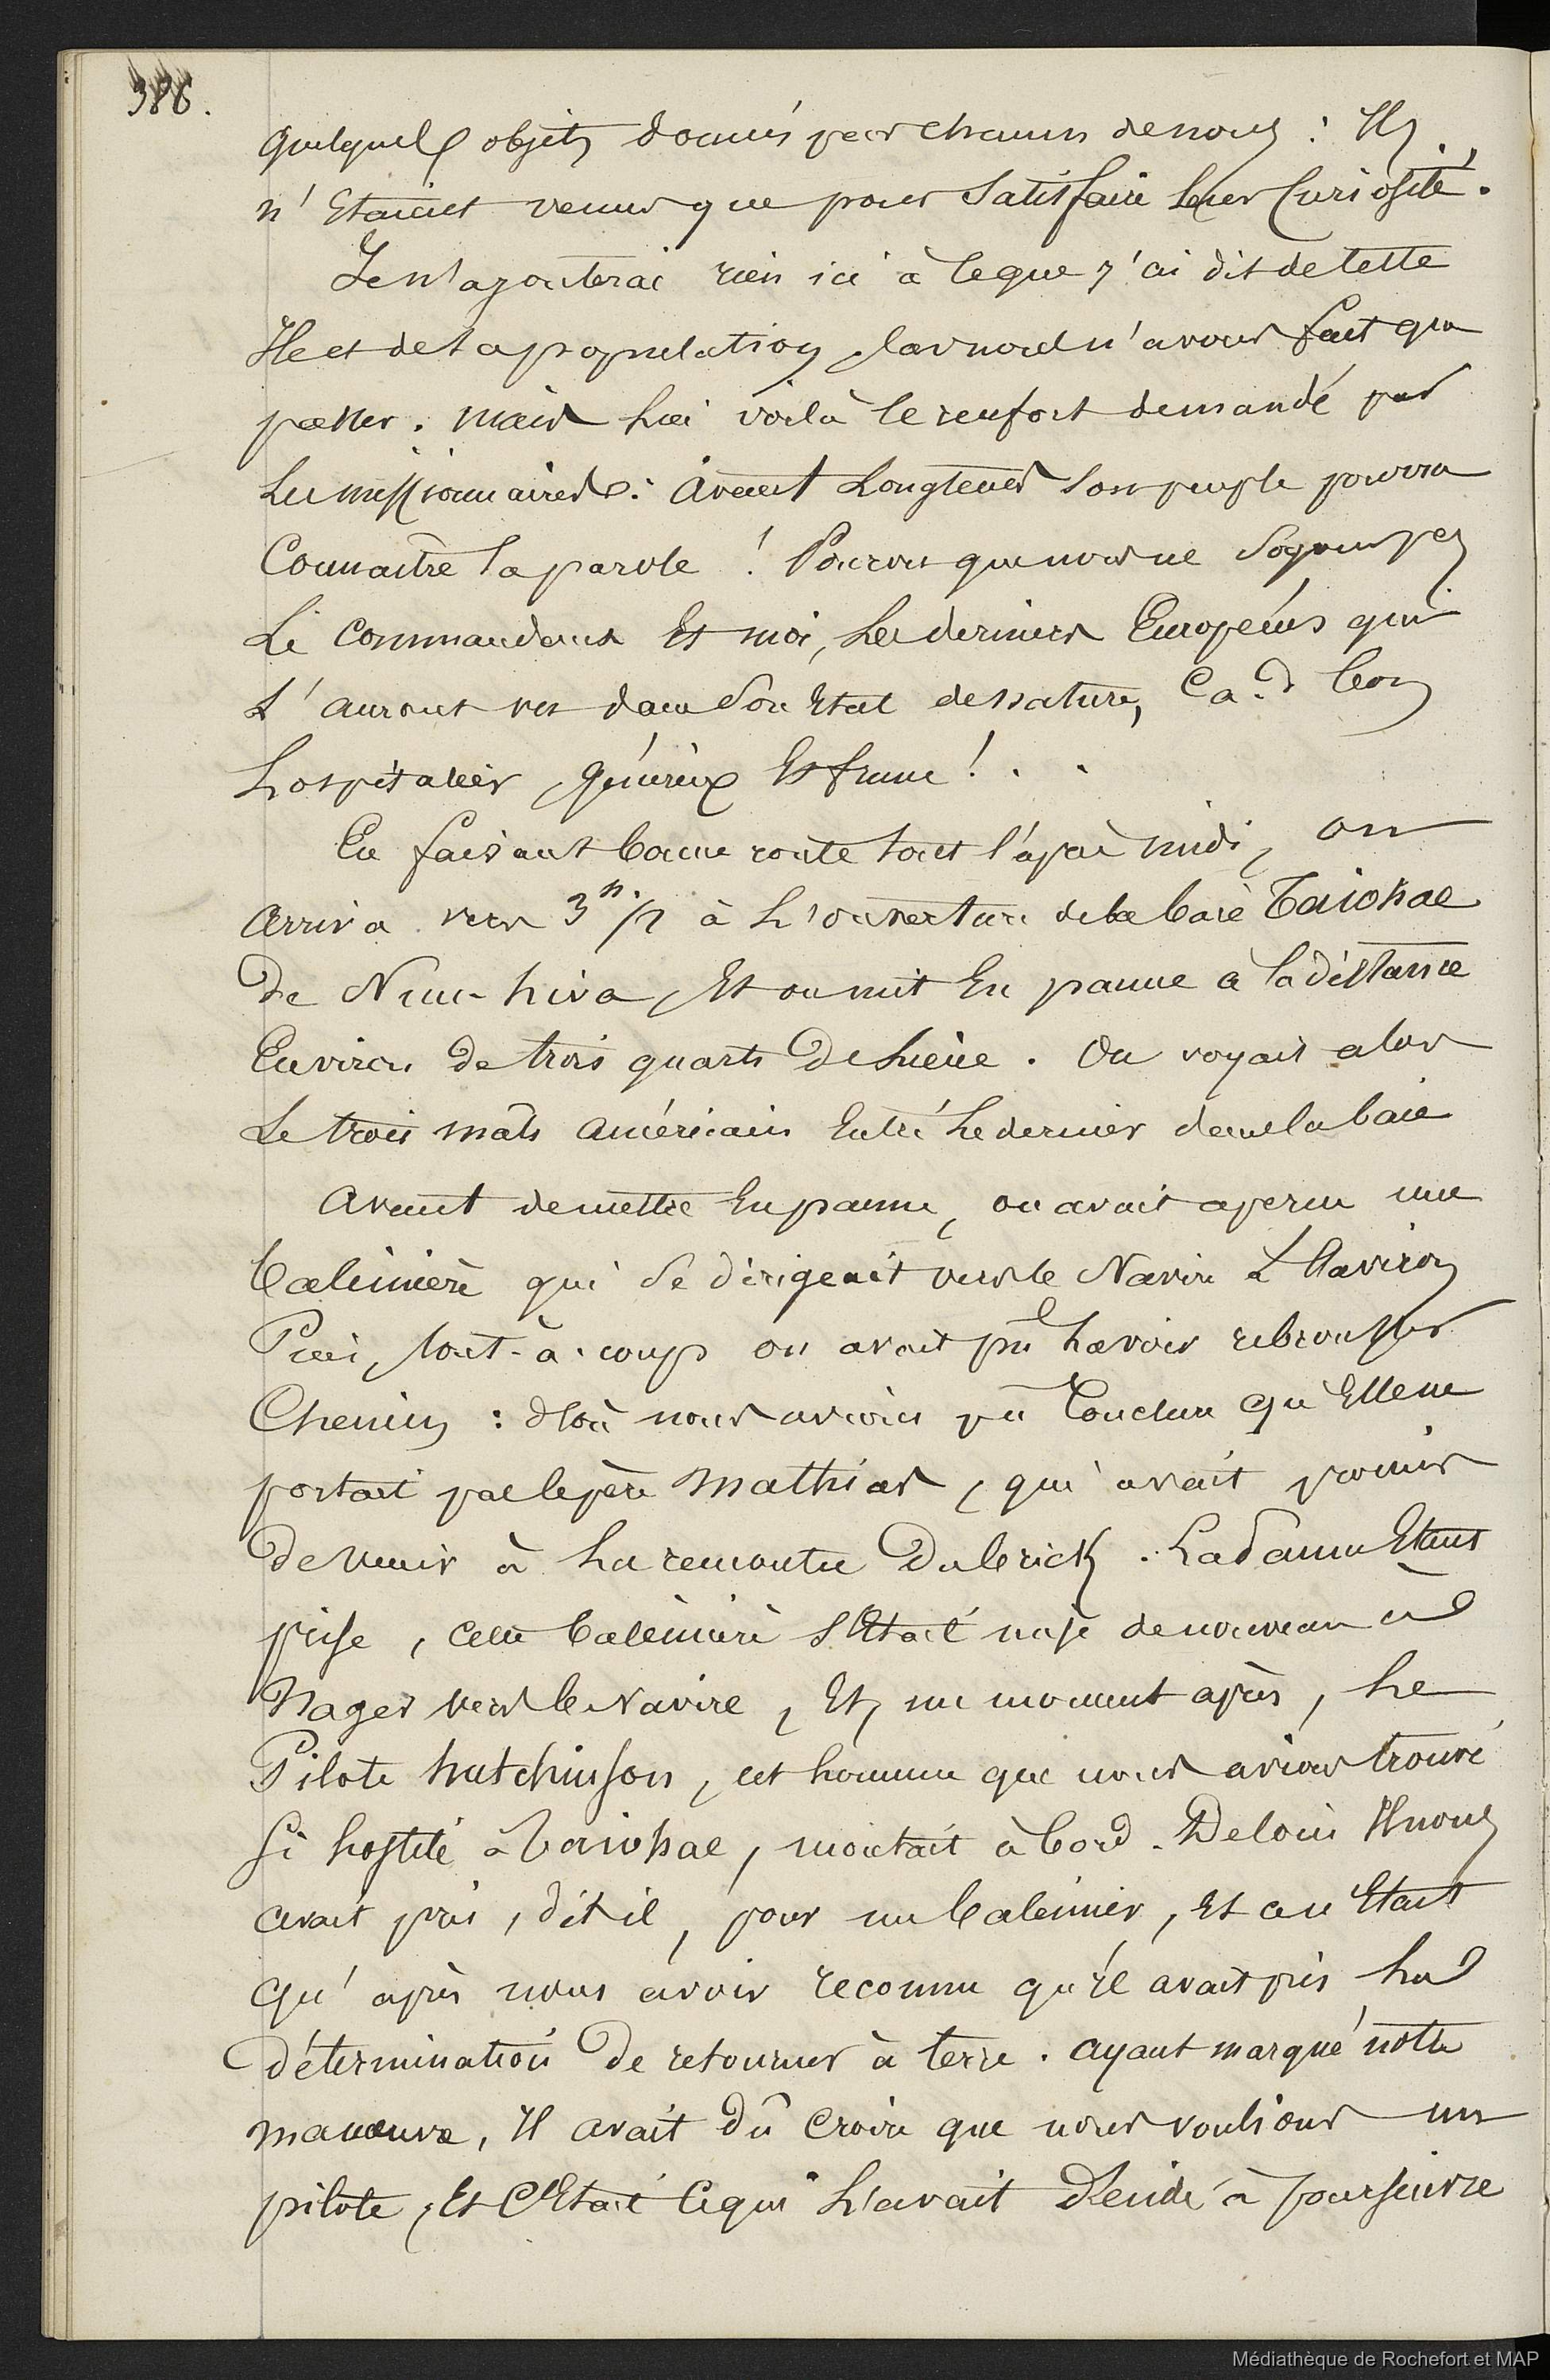 388.
quelques objets donnés par chacun de nous : Ils
n'Etaient venus que pour Satisfaire leur Curiosité.
Je n'ajouterai rien ici à ce que j'ai dit de cette
Ile et de sa population, car nous n'avons fait que
passer. Mais lui voilà le renfort demandé par
Les missionnaires : avant Longtems son peuple pourra
Connaître la parole ! Pourvu que nous ne soyons pas
Le Commandant Et moi, Les derniers Européens qui
L'auront vu dans Son Etat de nature, C. a. d. bon
hospitalier, généreux Et franc ! . .
En faisant bonne route tout l'après midi, on
arriva vers 3h. 1/2 à L'ouverture de la baie Taiohae
de Nuu-hiva, Et on mit En panne à la distance
Environ de trois quarts de Lieue. On voyait alors
Le trois mâts américain Entré Le dernier dans la baie
Avant de mettre En panne, on avait aperçu une
baleinière qui Se dirigeait vers le Navire à l'aviron
Puis, tout-à-coup on avait pu La voir rebrousser
Chemin : d'où nous avions pu Conclure qu'Elle ne
portait pas le père Mathias, qui avait promis
de venir à La rencontre du brick. La panne Etant
prise, cette baleinière s'Etait mise de nouveau à
Nager vers le Navire, Et, un moment après, Le
Pilote hutchinson, cet homme que nous avions trouvé
Si hostile à Taiohae, montait à bord. De loin Il nous
avait pris, dit il, pour un baleinier, Et ce n'Etait
qu'après nous avoir reconnu qu'il avait pris La
détermination de retourner à terre. ayant marqué notre
manœuvre, Il avait dû Croire que nous voulions un
pilote, Et C'Etait Ce qui L'avait décidé à poursuivre
Médiathèque de Rochefort et MAP